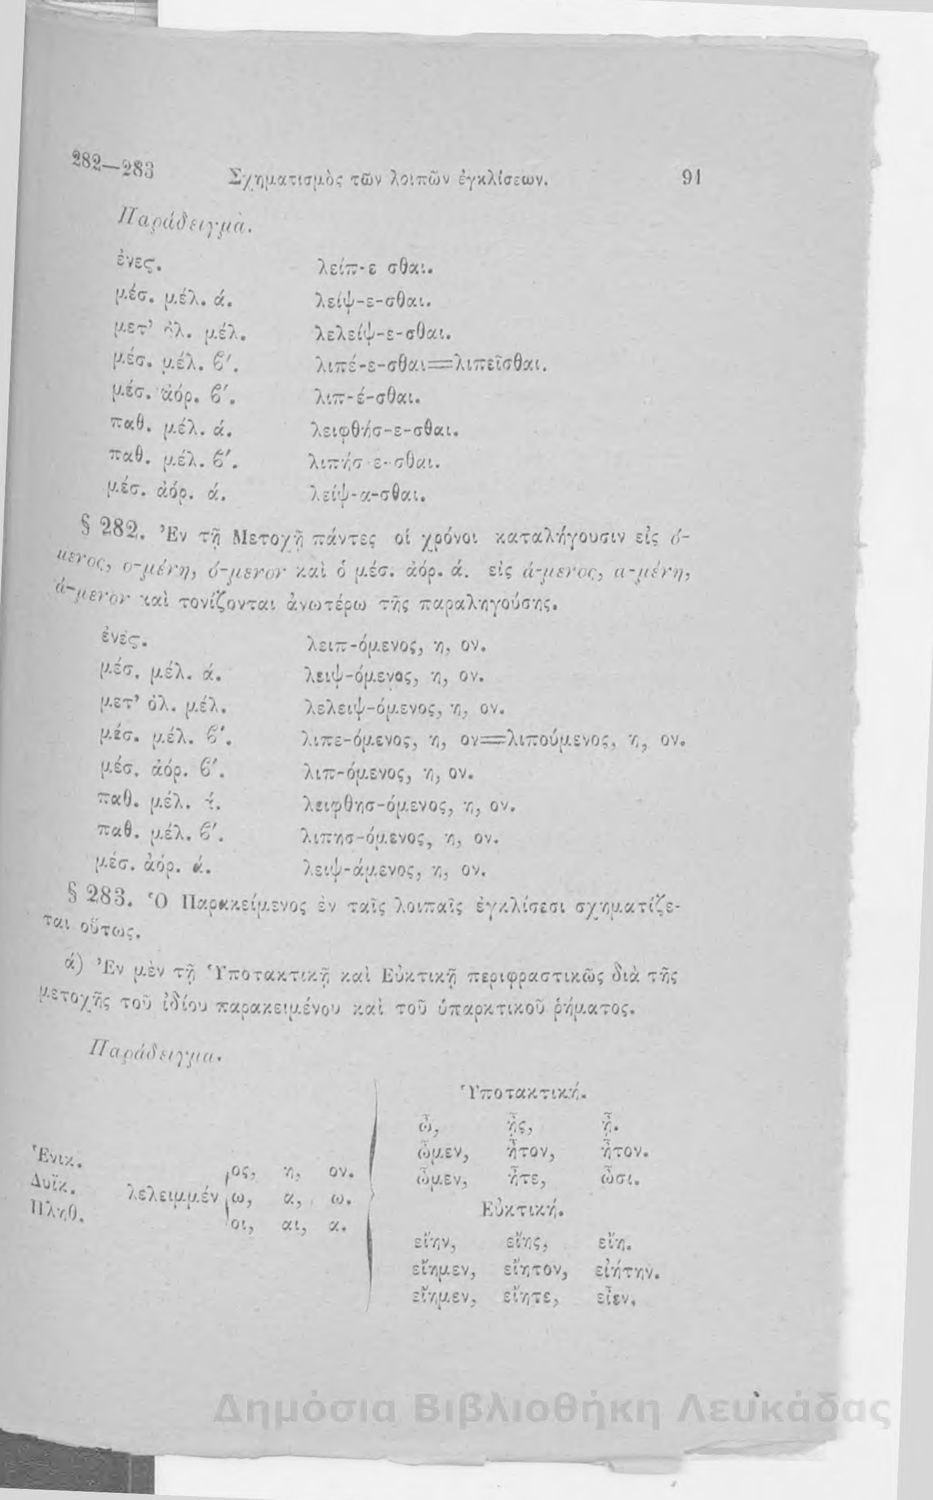 282—283 Σχηματισμὸς τῶν λοιπῶν ἐγκλίσεων. 91
Παράδειγμα.
ἐνες. λείπ-ε σθαι.
μέσ. μέλ. ά. λείψ-ε-σθαι.
μετ’ ὀλ. μέλ. λελείψ-ε-σθαι.
μέσ. μέλ. ϐ΄. λιπέ-ε-σθαι=λιπεῖσθαι.
μέσ. ἀόρ. ϐ΄. λιπ-έ-σθαι.
παθ. μέλ. ά. λειφθήσ-ε-σθαι.
παθ. μέλ. ϐ΄. λιπήσ-ε-σθαι.
μέσ. ἀόρ. ά. λείψ-α-σθαι.
§ 282. Ἐν τῇ Μετοχῇ πάντες οἱ χρόνοι καταλήγουσιν εἰς ό-
μενος, ο-μένη, ό-μενον καὶ ὁ μέσ. ἀόρ. ά. εἰς ά-μενος, α-μένη,
ά-μενον καὶ τονίζονται ἀνωτέρω τῆς παραληγούσης.
ἐνές. λειπ-όμενος, η, ον.
μέσ. μέλ. ά. λειψ-όμενος, η, ον.
μετ’ ὀλ. μέλ. λελειψ-όμενος, η, ον.
μέσ. μέλ. ϐ΄. λιπε-όμενος, η, ον=λιπούμενος, η, ον.
μέσ. ἀόρ. ϐ΄. λιπ-όμενος, η, ον.
παθ. μέλ. ά. λειφθησ-όμενος, η, ον.
παθ. μέλ. ϐ΄. λιπησ-όμενος, η, ον.
μέσ. ἀόρ. ά. λειψ-άμενος, η, ον.
§ 283. Ὁ Παρακείμενος ἐν ταῖς λοιπαῖς ἐγκλίσεσι σχηματίζε-
ται οὕτως.
ά) Ἐν μὲν τῇ Ὑποτακτικῇ καὶ Εὐκτικῇ περιφραστικῶς διὰ τῆς
μετοχῆς τοῦ ἰδίου παρακειμένου καὶ τοῦ ὑπαρκτικοῦ ῥήματος.
Παράδειγμα.
Ὑποτακτική.
ὦ, ῇς, ῇ.
Ἑνικ. ος, η, ον. ὦμεν, ἦτον, ἦτον.
Δυϊκ. λελειμμέν ω, α, ω. ὦμεν, ἦτε, ὦσι.
Πληθ. οι, αι, α. Εὐκτική.
εἴην, εἴης, εἴη.
εἴημεν, εἴητον, εἰήτην.
εἴημεν, εἴητε, εἶεν.
Δημόσια Βιβλιοθήκη Λευκάδας